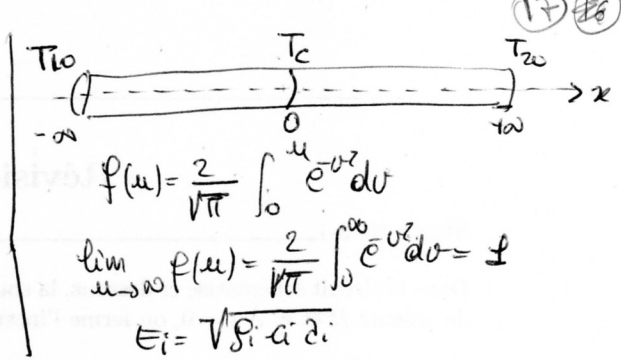 17
T10 Tc T20
-∞ 0 +∞ x
f(u) = 2/√π ∫₀ᵘ e^{-v²} dv
lim u→∞ f(u) = 2/√π ∫₀^∞ e^{-v²} dv = 1
Ei = √ρi ci λi